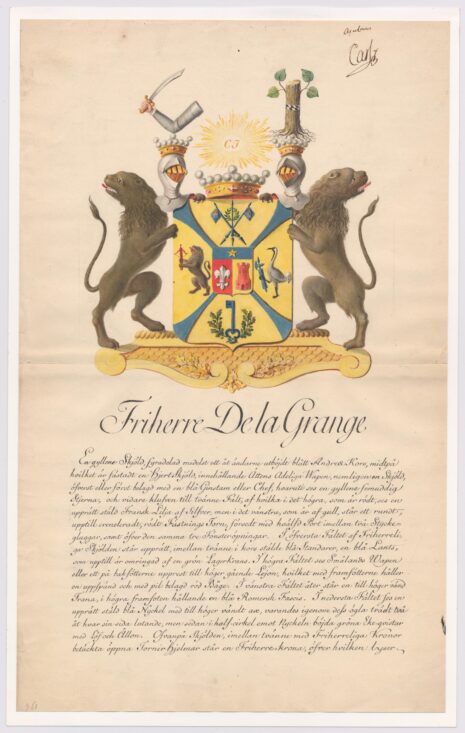 Carl
CJ
Friherre De la Grange
En gyllene Sköld, fyradelad medelst ett åt ändarne utböjdt blått Andreæ Kors, midtpå
hvilket är fästadt en Hjertsköld, innehållande Ättens Adeliga Wapen, nemligen: en Sköld,
öfverst eller först belagd med en blå Ginstam eller Chef, hvaruti ses en gyllene femuddig
Stjerna, och vidare klufven till tvänne Fält, af hvilka i det högra, som är rödt, ses en
upprätt stäld Fransk Lilja af Silfver, men i det vänstra, som är af guld, står ett rundt,
upptill creneleradt, rödt Fästnings Torn, försedt med hvälfd Port imellan två Stycke-
gluggar, samt öfver den samma tre Fönsteröpningar. I öfversta Fältet af Friherreli-
ga Skölden står upprätt, imellan tvänne i kors stälda blå Standarer, en blå Lants,
som upptill är omringad af en grön Lagerkrans. I högra Fältet ses Smålands Wapen,
eller ett på bakfötterne upprest till höger gående Lejon, hvilket med framfötterne håller
en uppspänd och med pil belagd röd Båge. I vänstra Fältet åter står en till höger vänd
Trana, i högra framfoten hållande en blå Romersk Fasces. I nedersta Fältet ses en
upprätt stäld blå Nyckel med till höger vändt ax, varandes igenom dess ögla trädt två
åt hvar sin sida lutande, men sedan i half cirkel emot Nyckeln böjda gröna Ekqvistar
med Löf och Ållon. Ofvanpå Skölden, imellan tvänne med Friherreliga Kronor
betäckta öppna Torner Hjelmar står en Friherre krona, öfver hvilken lyser